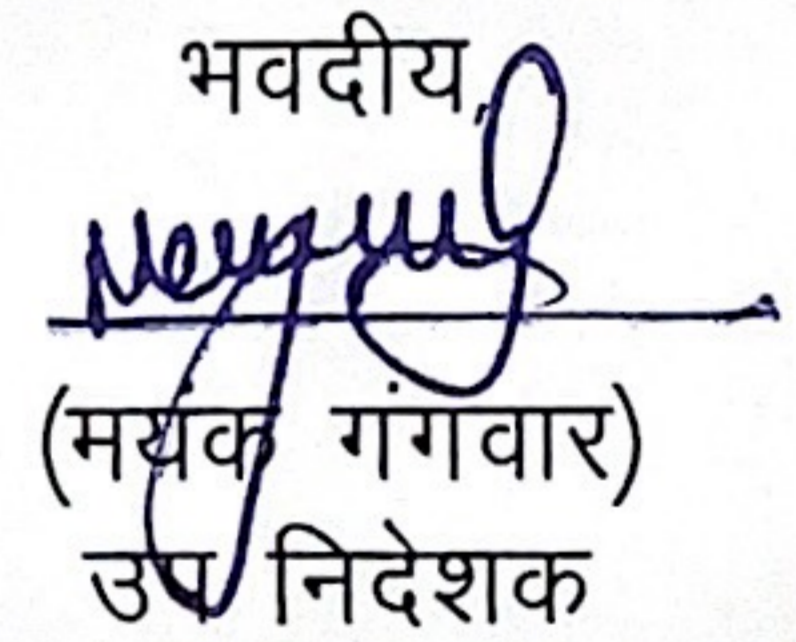 भवदीय,
(मयंक गंगवार)
उप निदेशक